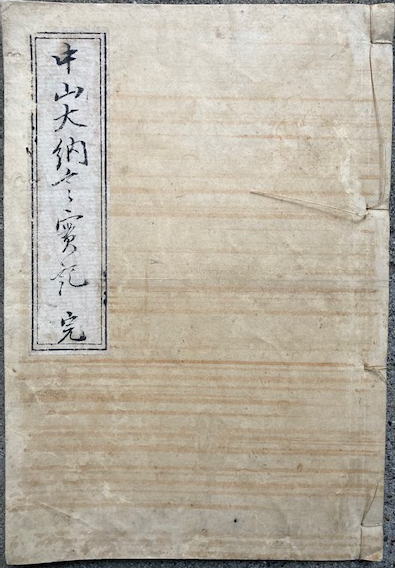 中山大納言實記 完